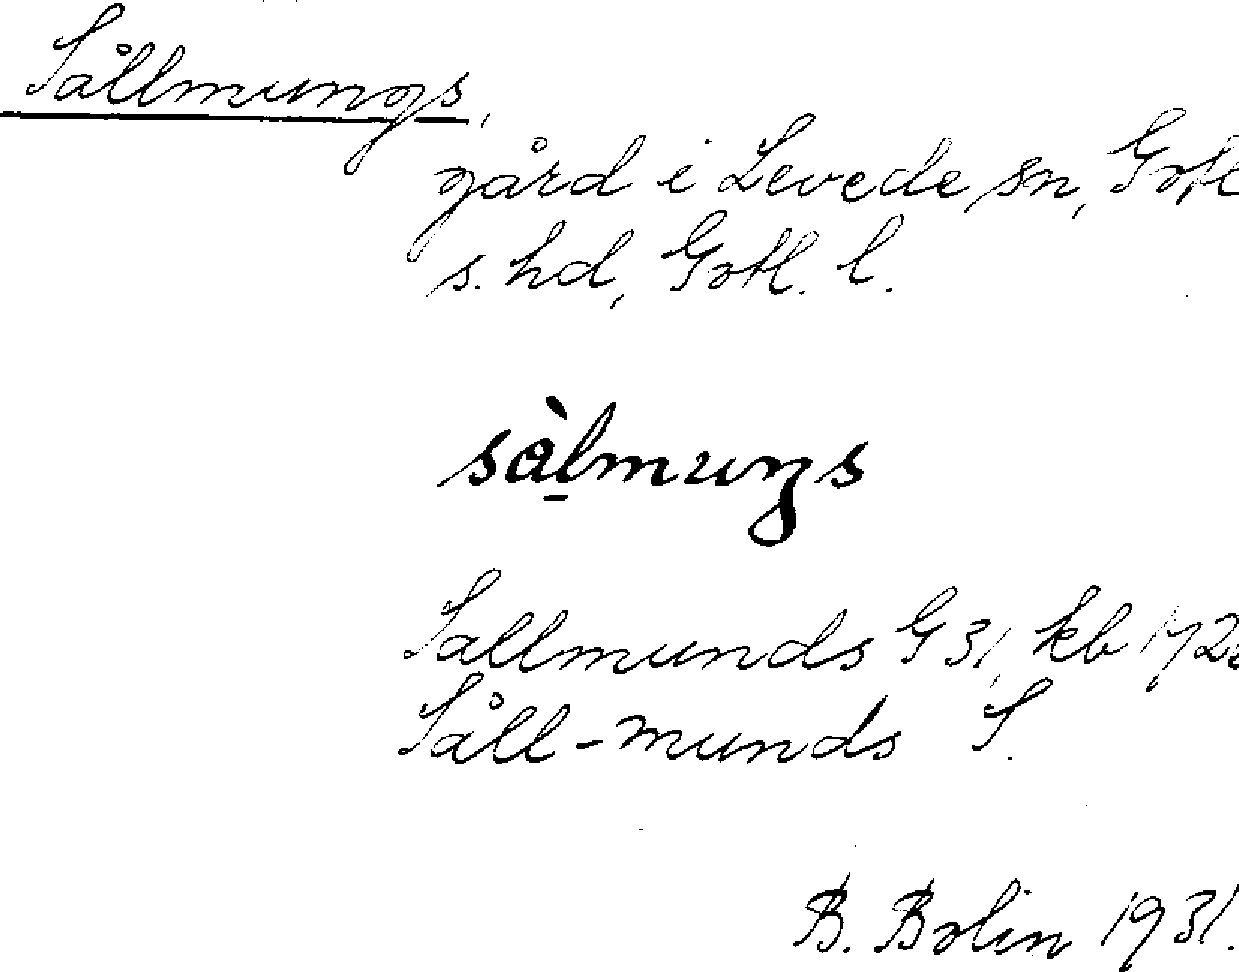 Sållmungs,
gård i Levede sn, Gotl
s. hd, Gotl. l.
sàlmuŋs
Sallmunds G 31, kb 172
Såll-munds S.
B. Bolin 1931.